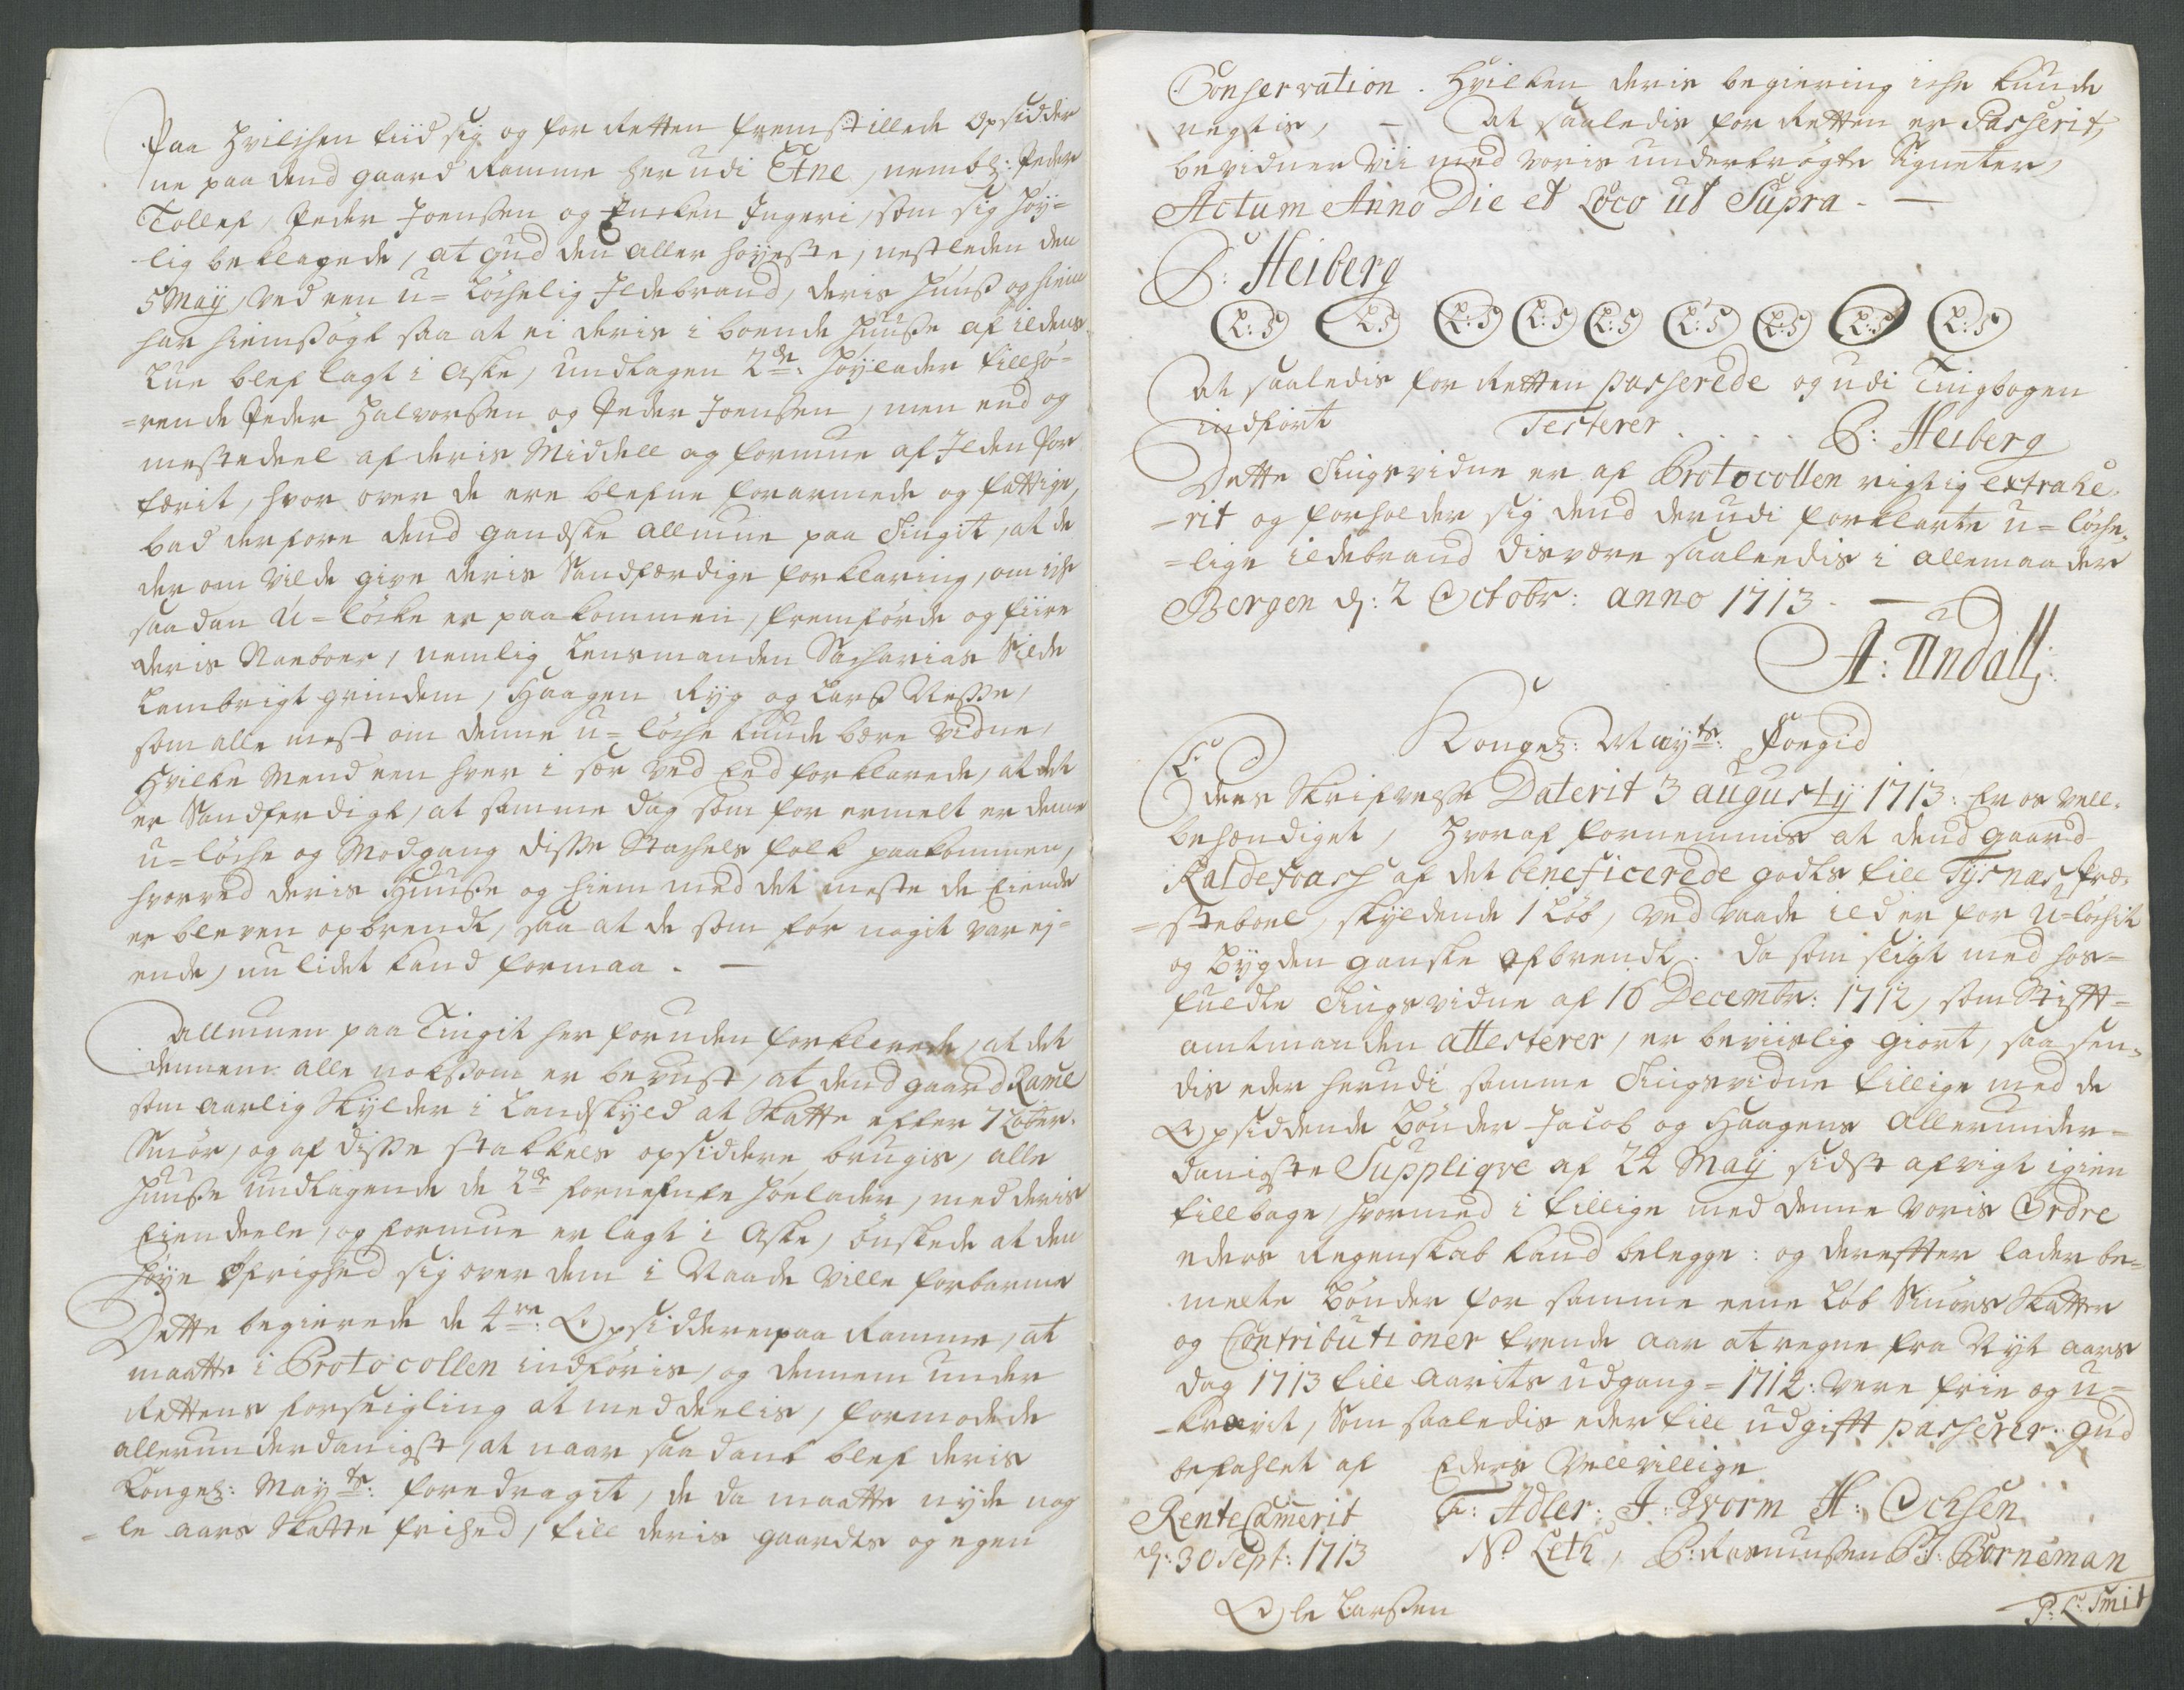 Paa Hvilchen tiid sig og for Retten fremstillede Opsidder
ne paa dend gaard Ramme her udi Etne, nembl: Peder
Tollef, Peder Joensen og Encken Ingeri, som sig høy-
lig beklagede, at gud den aller høyeste, nestleden den
5 Maÿ, ved een u-løchelig Ildebrand, deris Huus og hiem
har hiemsøgt saa at ei deris i boende Huuse af ildens
Lue blef lagt i Aske, undtagen 2de: Høyelader tillhø-
-rende Peder Halvorsen og Peder Joensen, men end og
meste deel af deris Middell og formue af Ilden for
tærit, hvor over de ere blefne forarmede og fattige,
bad derfore dend gandske Allmue paa Tingit, at de
der om vilde give deris Sandferdige forklaring, om ich
saadan U-løcke er paakommen, fremførde og fiire
deris Naeboer, nemlig Lensmanden Sacharias Silde
Lambrigt grindem, Haagen Ryg og Lars Næsse,
som alle mest om denne u-løche kunde bære vidne,
Hvilke Mend een hver i sær ved Eed forklarede, at det
er Sandferdigt, at samme dag som for ermelt er denne
u-løche og Modgang disse Stachels folk paakommen,
hvorved deris Huuse og hiem med det meste de Eiende
er bleven opbrendt, saa at de som før nogit var ej-
ende, nu lidet kand formaa. —
Allmuen paa Tingit her foruden forklarede, at det
dennem alle noksom er bevust, at dend gaard Rame
som aarlig Skylder i Landskyld at Skatte efter 7 Løber
Smør, og af disse stakkels opsiddere brugis, alle
Huuse undtagende de 2de fornefnte Høelader, med deris
Eiendeele, og formue er lagt i Aske, ønskede at den
høye Øfrighed sig over dem i Naade ville forbarme
Dette begierede de 4re: Opsiddere paa Ramme, at
maatte i Protocollen indføris, og dennem under
Rettens forseigling at meddeelis, formodede
allerunderdanigst, at naar saadant blef deris
Kongel: Mayts: foredragit, de da maatte nyde nog
-le aars Skatte frihed, till deris gaardts og egen
Conservation. Hvilken deris begiering iche kunde
negtis, — At saaledis for Retten er Passerit,
bevidner Vii med voris undertrøgte Signeter,
Actum Anno Die et Loco ut Supra. —
P: Heiberg
L:S L:S L:S L:S L:S L:S L:S L:S L:S
At saaledis for Retten passerede og udi Tingbogen
indført Testerer .... P: Heiberg
Dette Tingsvidne er af Protocollen rigtig extrahe-
-rit og forholder sig dend derudi forklarte u-løche-
-lige ildebrand disvære saaleedis i allemaader
Bergen d: 2 Octobr: anno 1713. —
A: Undall:
Kongel: Mayts: Foegid
Eders Skrifvelse Daterit 3 augusty 1713: Er os vell
behændiget, Hvoraf fornemmis at dend gaard
Kaldefoasch af det beneficerede godts till Tysnæs Præ-
-stebøel, skyldende 1 Løb, ved vaade ild er for u-løchit
og Bygden ganske afbrendt. Da som sligt med hos-
fuldte Tingsvidne af 16 Decembr: 1712, som Stifft-
amtmanden attesterer, er beviislig giort, saa sen-
dis eder herudi samme Tingsvidne tillige med de
Opsiddende Bønder Jacob og Haagens Allerunder-
danigste Suppliqve af 22 Maÿ sidst afvigt igien
tillbage, hvormed i tillige med denne voris Ordre
eders Regenskab kand belegge: og derefter lader be-
meelte Bønder for samme eene Løb Smørs Skatter
og Contributioner trende aar at regne fra Nyt aars
dag 1713 till Aarits udgang - 1712: være frie og u-
-krævit, som saaledis eder till udgift passerer. gud
befahlet af Eders Vellvillige
RenteCamerit F: Adler: J: Worm H: Ochsen
d: 30 Sept: 1713 N: Leth, P: Rasmussen P: J: Borneman
Ole Larssen P: L: Smit